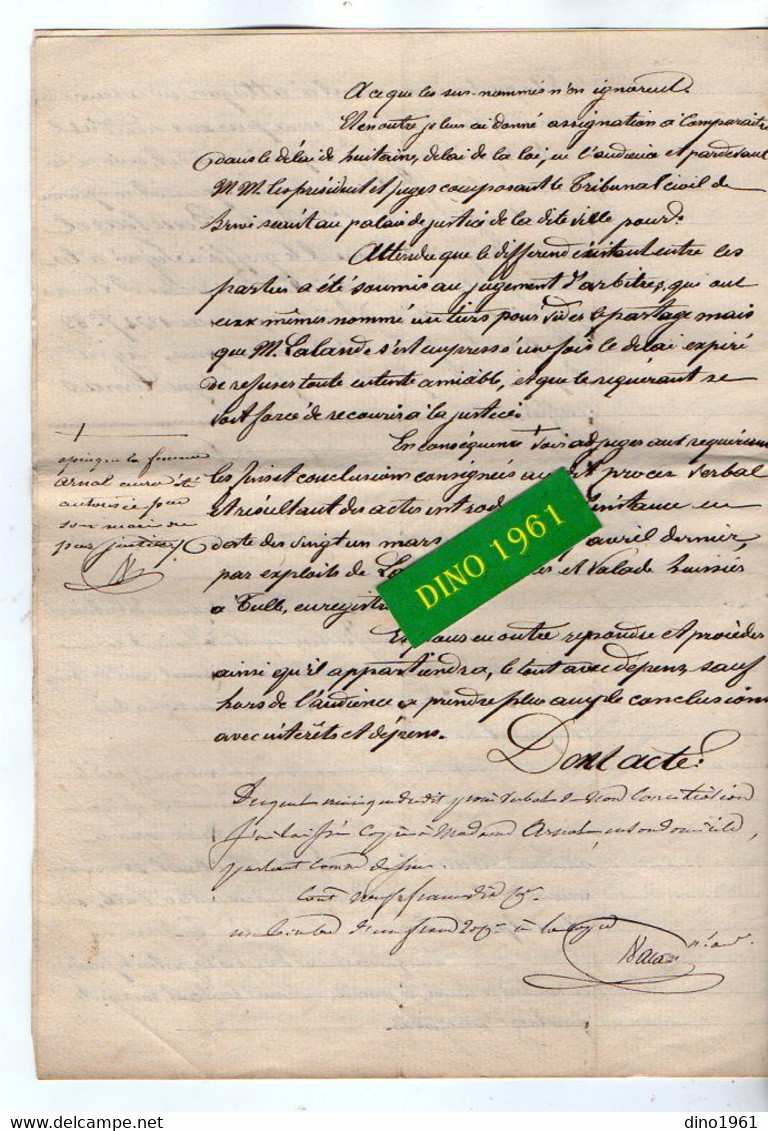 A ce que les sus-nommés n'en ignorent.
Et en outre je leur ai donné assignation à comparaitre
dans le délai de huitaine, délai de la loi, en l'audience et pardevant
M M. les président et juges composant le Tribunal civil de
Brive séant au palais de justice de la dite ville pour:
Attendu que le différend existant entre les
parties a été soumis au jugement d'arbitres, qui ont
eux mêmes nommé un tiers pour vider le partage mais
que M. Lalande s'est empressé une fois le délai expiré
de refuser toute entente amiable, et que le requérant se
voit forcé de recourir à la justice.
En conséquence voir adjuger aux requérants
les fins et conclusions consignées au dit procès verbal
et résultant des actes introd instance en
date des vingt un mars avril dernier,
par exploits de et Valade huissiers
à Tulle, enregistré
Et pour en outre répondre et procéder
ainsi qu'il appartiendra, le tout avec dépens, sauf
hors de l'audience à prendre plus ample conclusions
avec intérêts et dépens.
Dont acte.
procès verbal de non conciliation
j'ai laissé copie à Madame Arnal en son domicile,
parlant comme dessus
cout neuf francs dix
à la copie
après que la femme
Arnal aura été
autorisée par
son mari ou
par justice
DINO 1961
dino1961